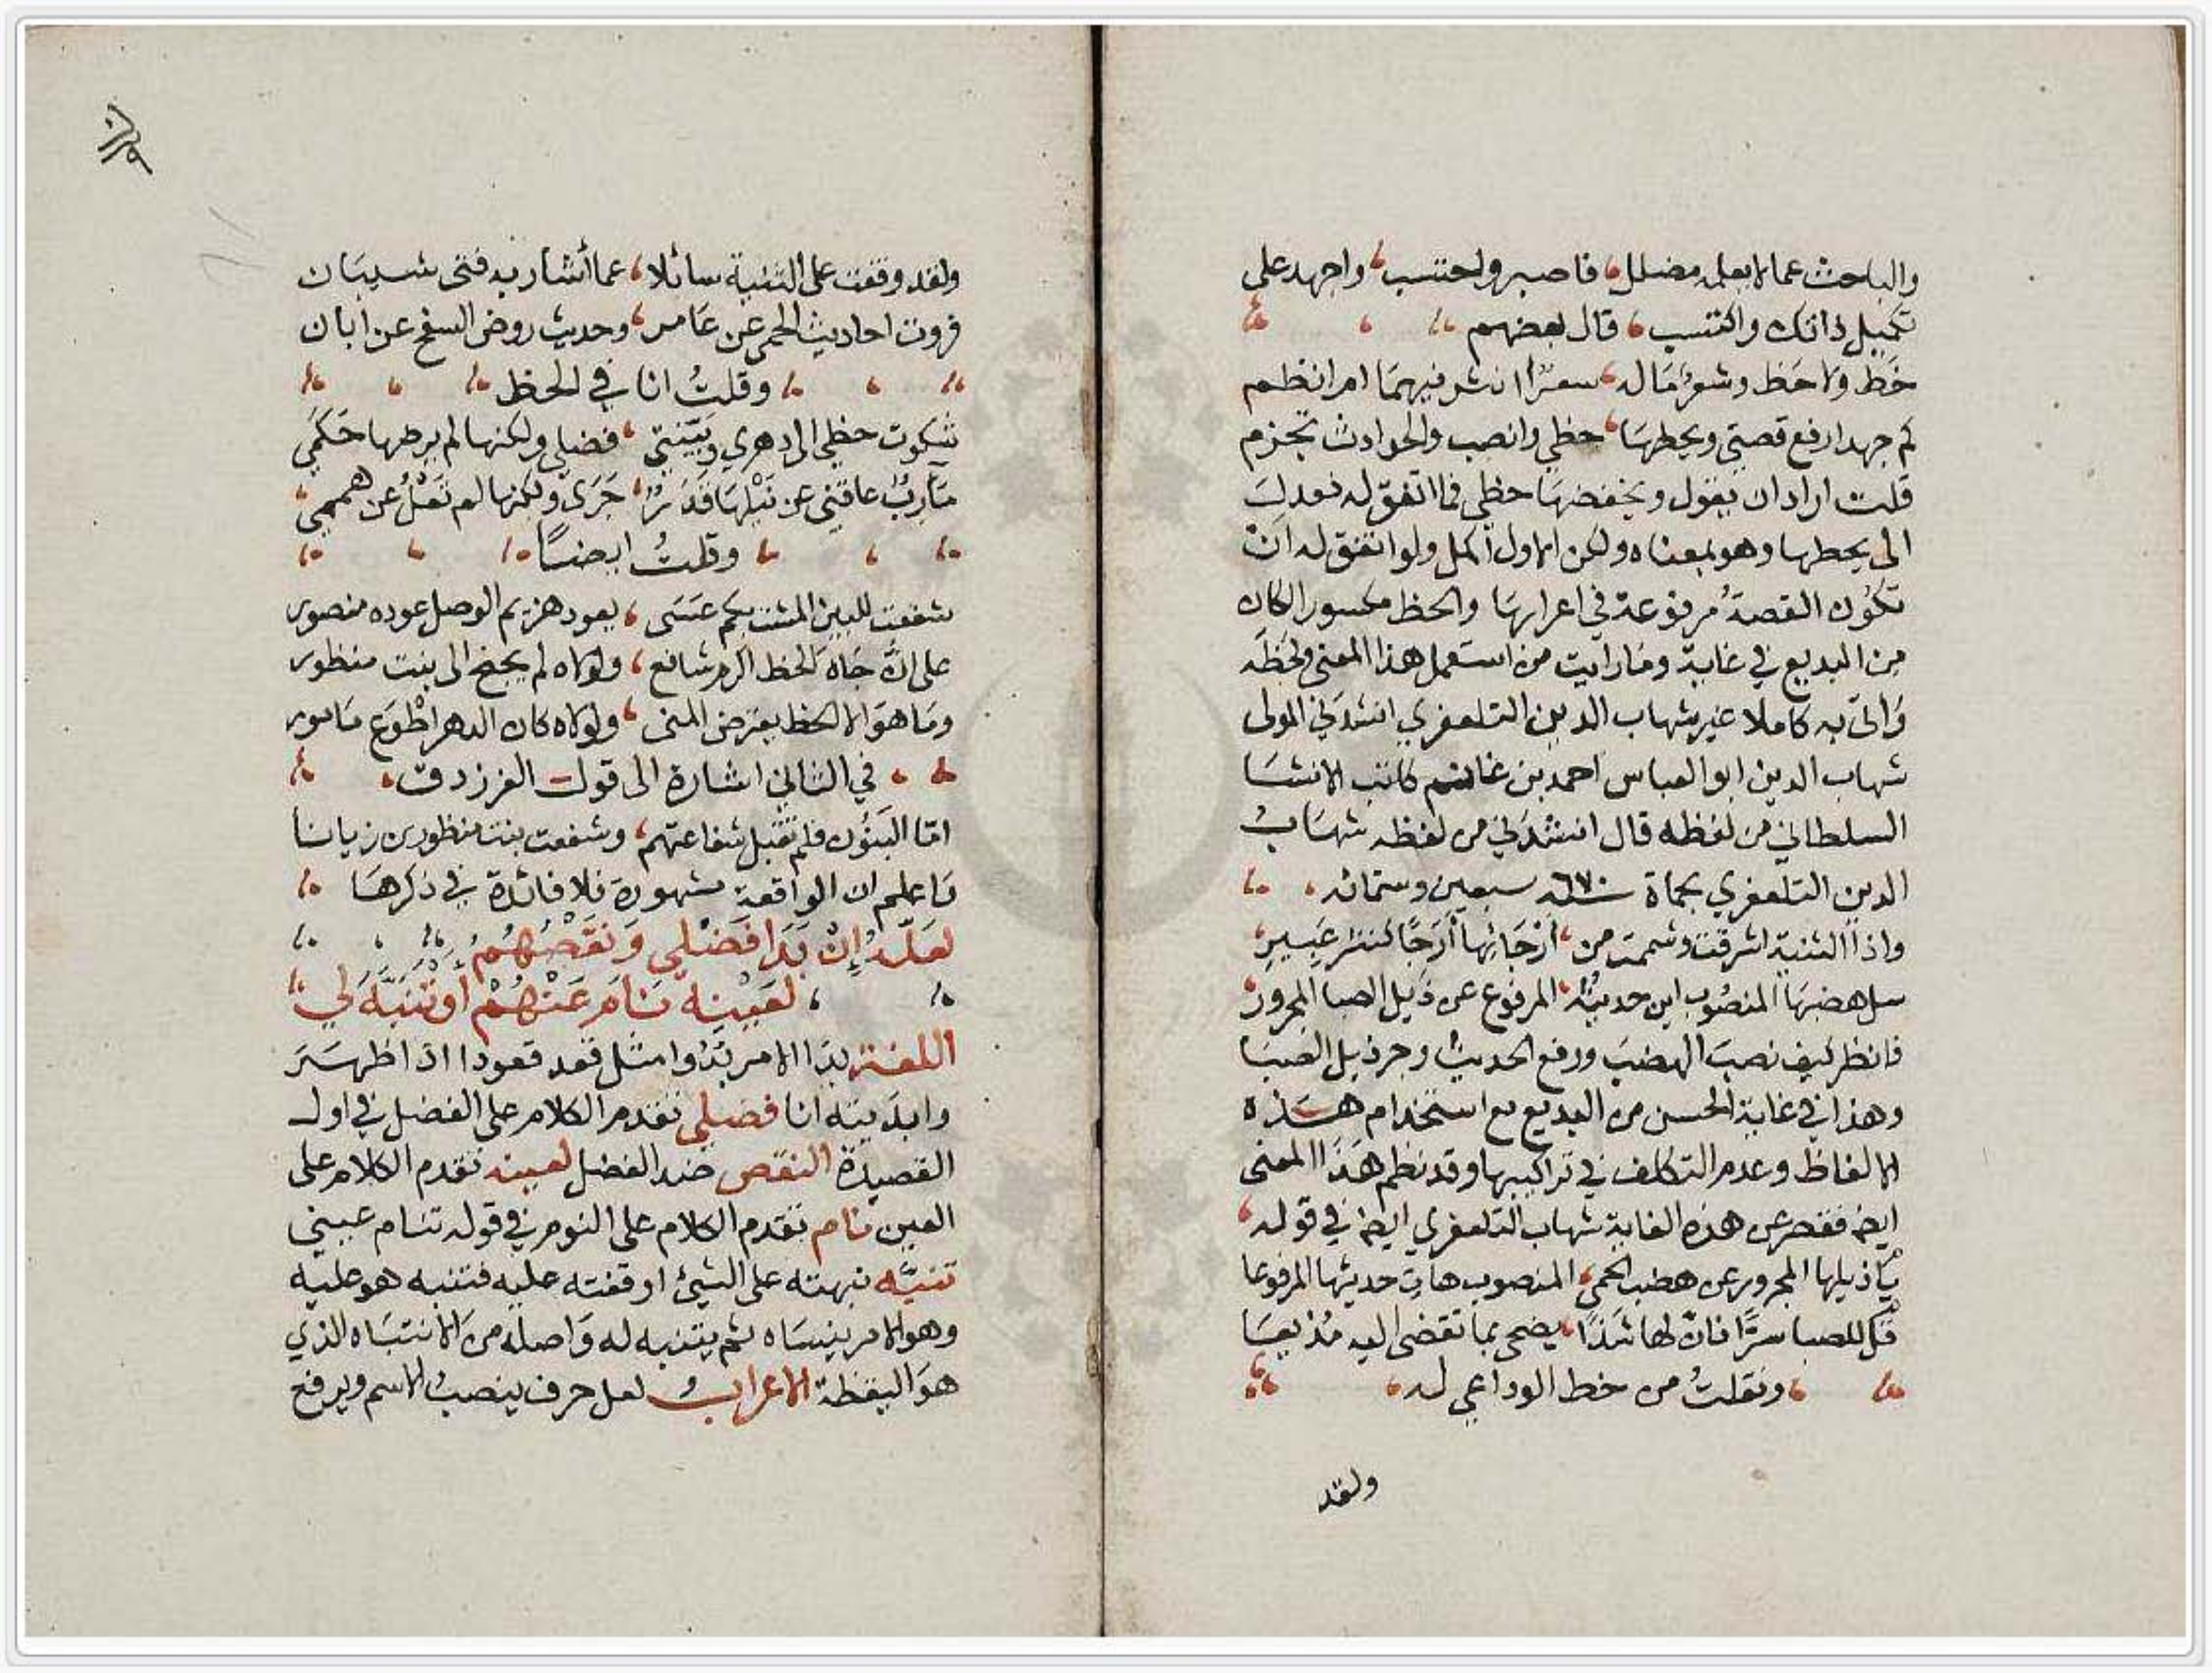 والباحث عما لا يعلمه مضلل، فاصبر واحتسب، واجهد على
تكميل ذاتك واكتسب، قال بعضهم
خط ولا حظ وشعر ماله، سعر انثر فيهما ام انظم
كم جهد ارفع قصتي ويحطها، حظي وانصب والحوادث تجزم
قلت اراد ان يقول ويخفضها حظي فما اتفق له فعدل
الى يحطها وهو بمعناه ولكن الاول اكمل ولو اتفق له ان
تكون القصة مرفوعة في اعرابها والحظ مكسور الكان
من البديع في غاية وما رايت من استعمل هذا المعنى ولحظه
واتى به كاملا غير شهاب الدين التلعفري انشدني المولى
شهاب الدين ابو العباس احمد بن غانم كاتب الانشا
السلطاني من لفظه قال انشدني من لفظه شهاب
الدين التلعفري بحماة سنة ٦٧٠ سبعين وستمائه
واذا الثنية اشرقت وشممت من، ارجائها أرجًا كنشر عبير
سل هضبها المنصوب اين حديثه، المرفوع عن ذيل الصبا المجرور
فانظر كيف نصب الهضب ورفع الحديث وجر ذيل الصبا
وهذا في غاية الحسن من البديع مع استخدام هذه
الالفاظ وعدم التكلف في تراكيبها وقد نظم هذا المعنى
ايضا فقصر عن هذه الغاية شهاب التلعفري ايضا في قوله
يا ذيلها المجرور عن هضب الحمى، المنصوب هات حديثها المرفوعا
قل للصبا سرًّا فان لها شذًا، يضحى بما تفضى اليه مذيعا
ونقلتُ من خط الوداعي له
ولقد
ولقد وقفت على الثنية سائلا، عما أشار به فتى شيبان
فروت احاديث الحمى عن عامر، وحديث روض السفح عن ابان
وقلتُ انا في الحظ
شكوت حظي الى دهري وبيّنتي، فضلي ولكنها لم يرضها حَكَمي
مآرب عاقني عن نيلها قدر، جرى ولكنها لم تعلُ عن هممي
وقلتُ ايضًا
شفعت للبين المشت بكم عسى، يعود هزيم الوصل عوده منصور
على انّ جاه الحظ اكرم شافع، ولولاه لم يجنح الى بنت منظور
وما هو الا الحظ يعترض المنى، ولولاه كان الدهر اطوع مامور
في الثاني اشارة الى قول الفرزدق
امّا البنون فلم تقبل شفاعتهم، وشفعت بنت منظور بن زبانا
فاعلم ان الواقعة مشهورة فلا فائدة في ذكرها
لعلّه إن بدا فضلي ونقصهم
لعينه نام عنهم أو تنبّه لي
اللغة بدا الامر بدوا مثل قعد قعودا اذا ظهر
وابديته انا فضلي تقدم الكلام على الفضل في اول
القصيدة النقص ضد الفضل لعينه تقدم الكلام على
العين نام تقدم الكلام على النوم في قوله تنام عيني
تنبّه نبهته على الشيئ اوقفته عليه فتنبه هو عليه
وهو الامر ينساه ثم يتنبه له واصله من الانتباه الذي
هو اليقظة الاعراب لعل حرف ينصب الاسم ويرفع